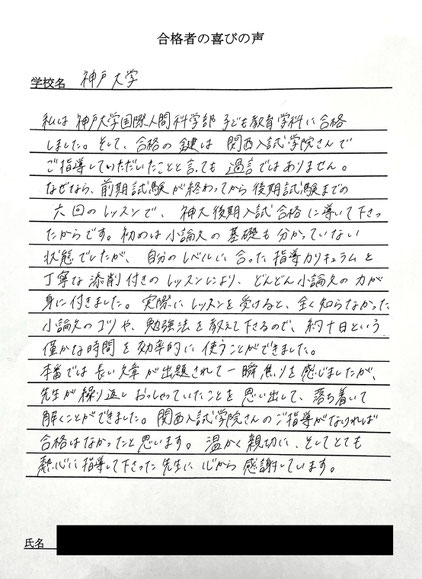 合格者の喜びの声
学校名 神戸大学
私は神戸大学国際人間科学部 子ども教育学科に合格
しました。そして、合格の鍵は関西入試学院さんで
ご指導していただいたことと言っても過言ではありません。
なぜなら、前期試験が終わってから後期試験までの
六回のレッスンで、神大後期入試合格に導いて下さっ
たからです。初めは小論文の基礎も分かっていない
状態でしたが、自分のレベルに合った指導カリキュラムと
丁寧な添削付きのレッスンにより、どんどん小論文の力が
身に付きました。実際にレッスンを受けると、全く知らなかった
小論文のコツや、勉強法を教えて下さるので、約十日という
僅かな時間を効率的に使うことができました。
本番では長い文章が出題されて一瞬焦りを感じましたが、
先生が繰り返しおっしゃっていたことを思い出して、落ち着いて
解くことができました。関西入試学院さんのご指導がなければ
合格はなかったと思います。温かく親切に、そしてとても
熱心に指導して下さった先生に心から感謝しています。
氏名